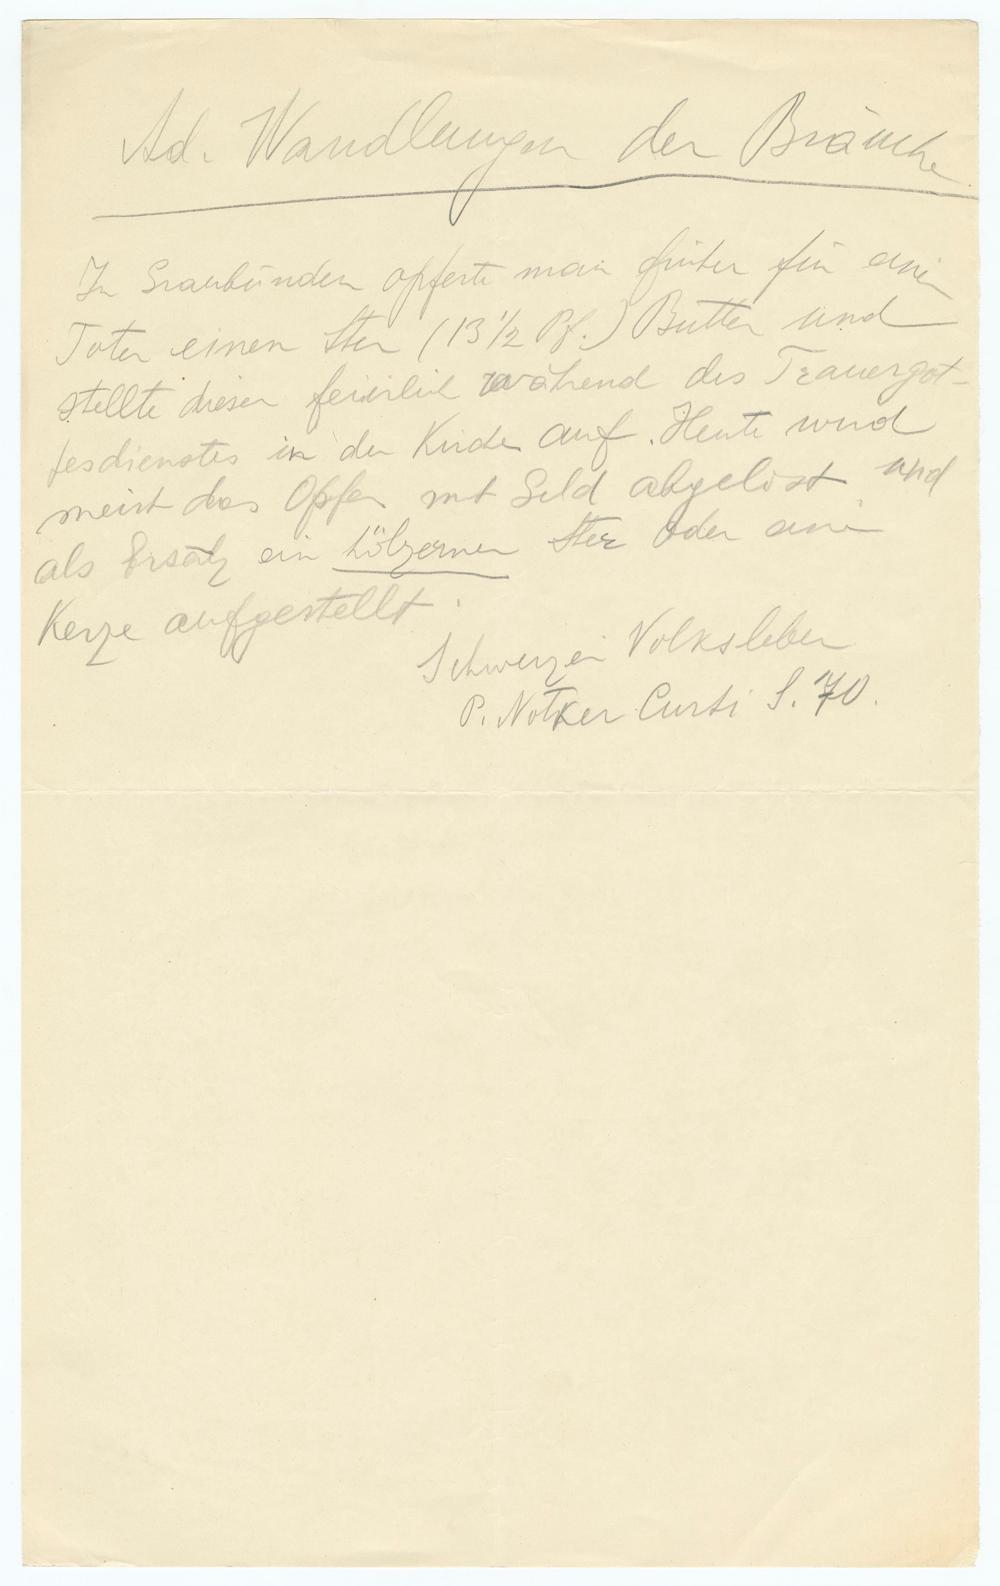 Ad. Wandlungen der Bräuche
In Graubünden opferte man früher für einen
Toten einen Ster (13 1/2 Pf.) Butter und
stellte diesen feierlich während des Trauergot-
tesdienstes in der Kirche auf. Heute wird
meist das Opfer mit Geld abgelöst und
als Ersatz ein hölzerner Ster oder eine
Kerze aufgestellt.
Schweizer Volksleben
P. Notker Curti S. 70.